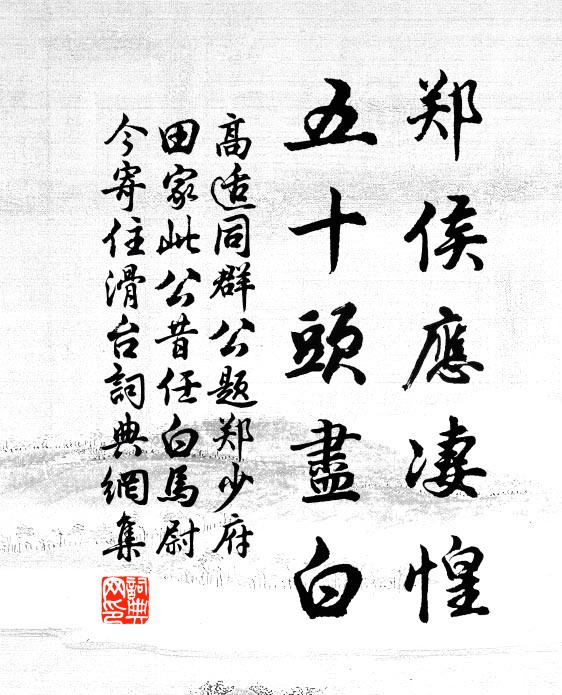 郑侯應凄惶
五十頭盡白
高适同群公题郑少府
田家此公昔任白馬尉
今寄住滑台詞典網集
詞典网印